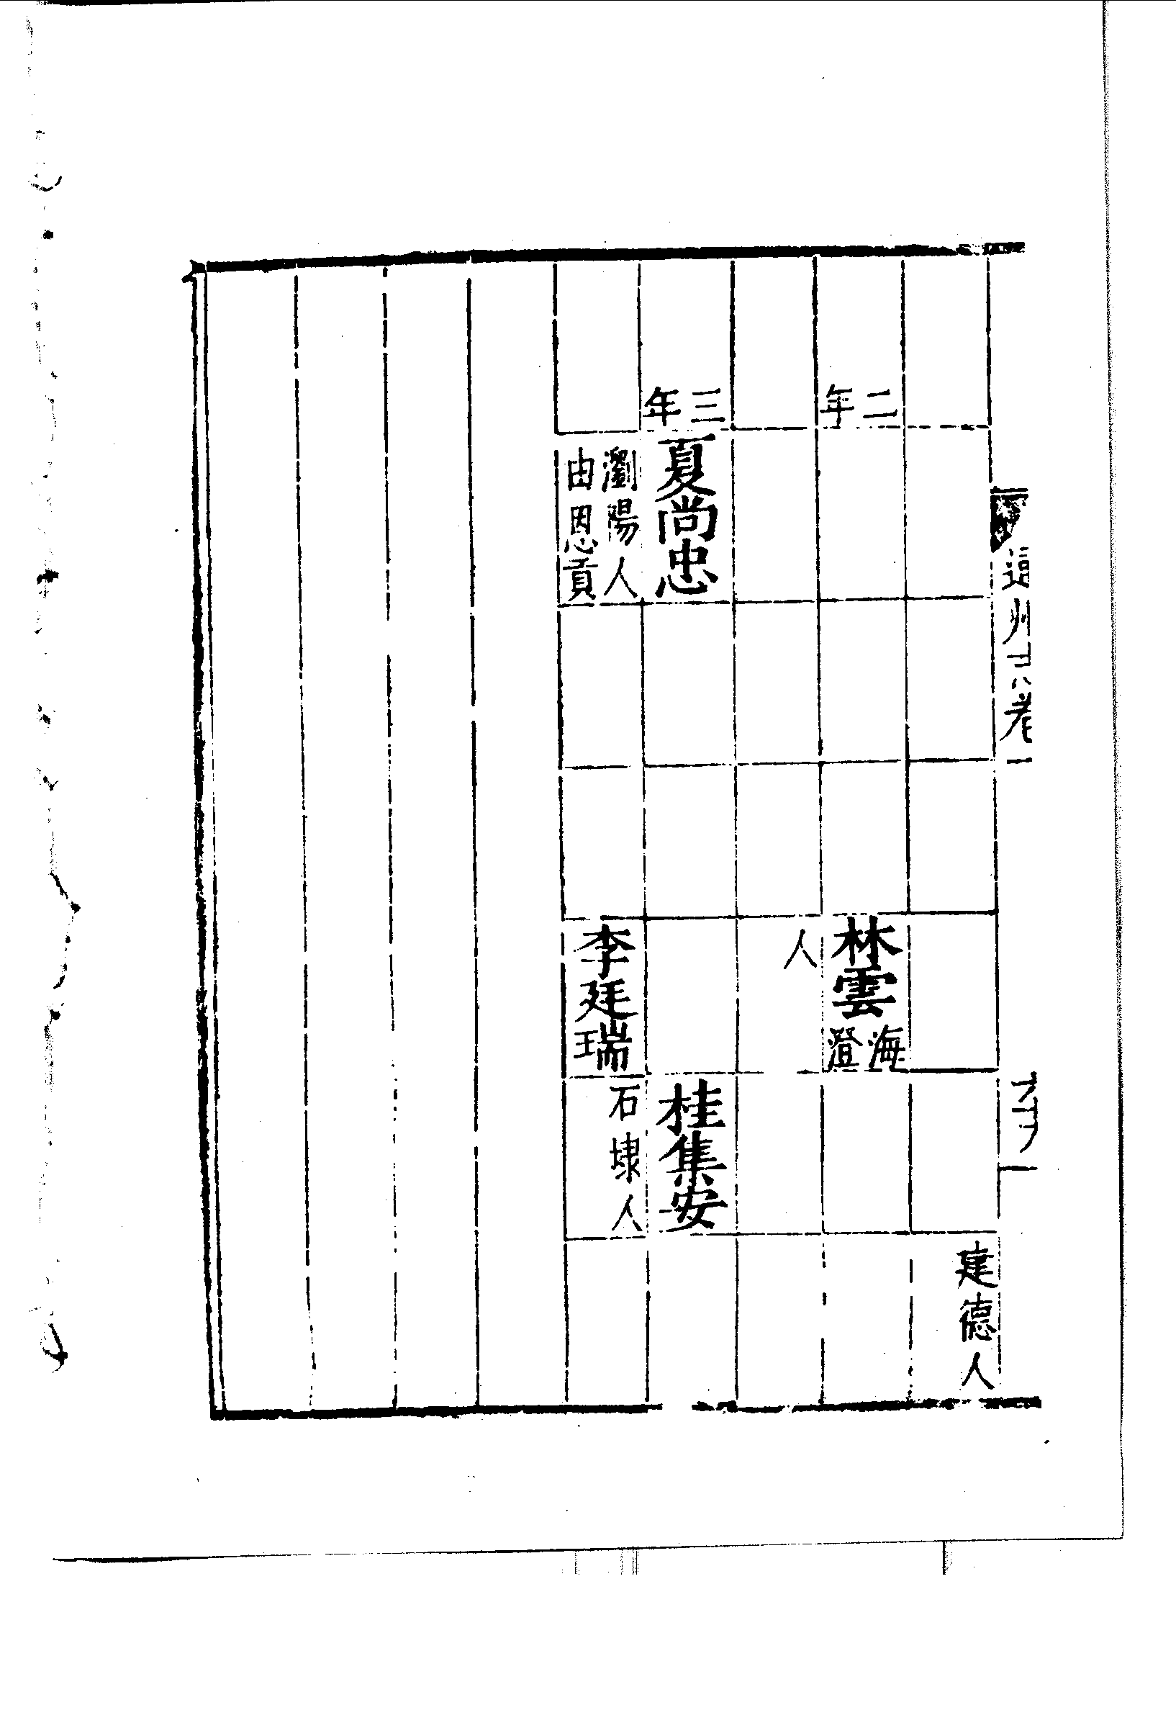 通州志卷
建德人
二年
林雲
海澄
人
三年
夏尚忠
桂集安
瀏陽人
由恩貢
李廷瑞
石埭人